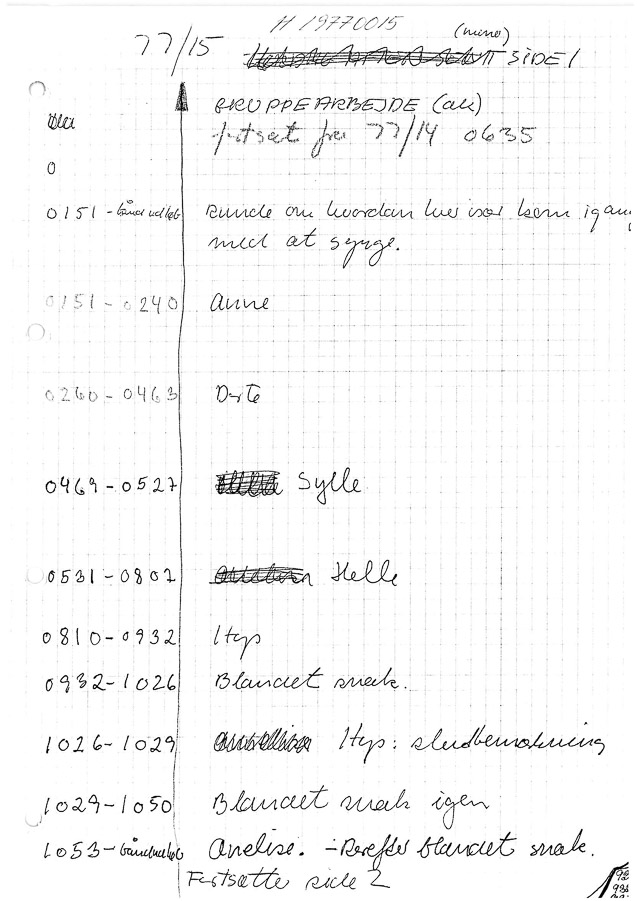 H 19770015
77/15 (mono)
SIDE 1
GRUPPEARBEJDE (alt)
fortsat fra 77/14 0635
0
0151 - båndudløb Runde om hvordan hver især kom igang
med at synge.
0151 - 0240 Anne
0260 - 0463 Dorte
0469 - 0527 Sylle
0531 - 0807 Helle
0810 - 0932 Htp
0932 - 1026 Blandet snak.
1026 - 1029 Htp: slutbemærkning
1029 - 1050 Blandet snak igen
1053 - båndudløb Anelise. - Derefter blandet snak.
Fortsætter side 2